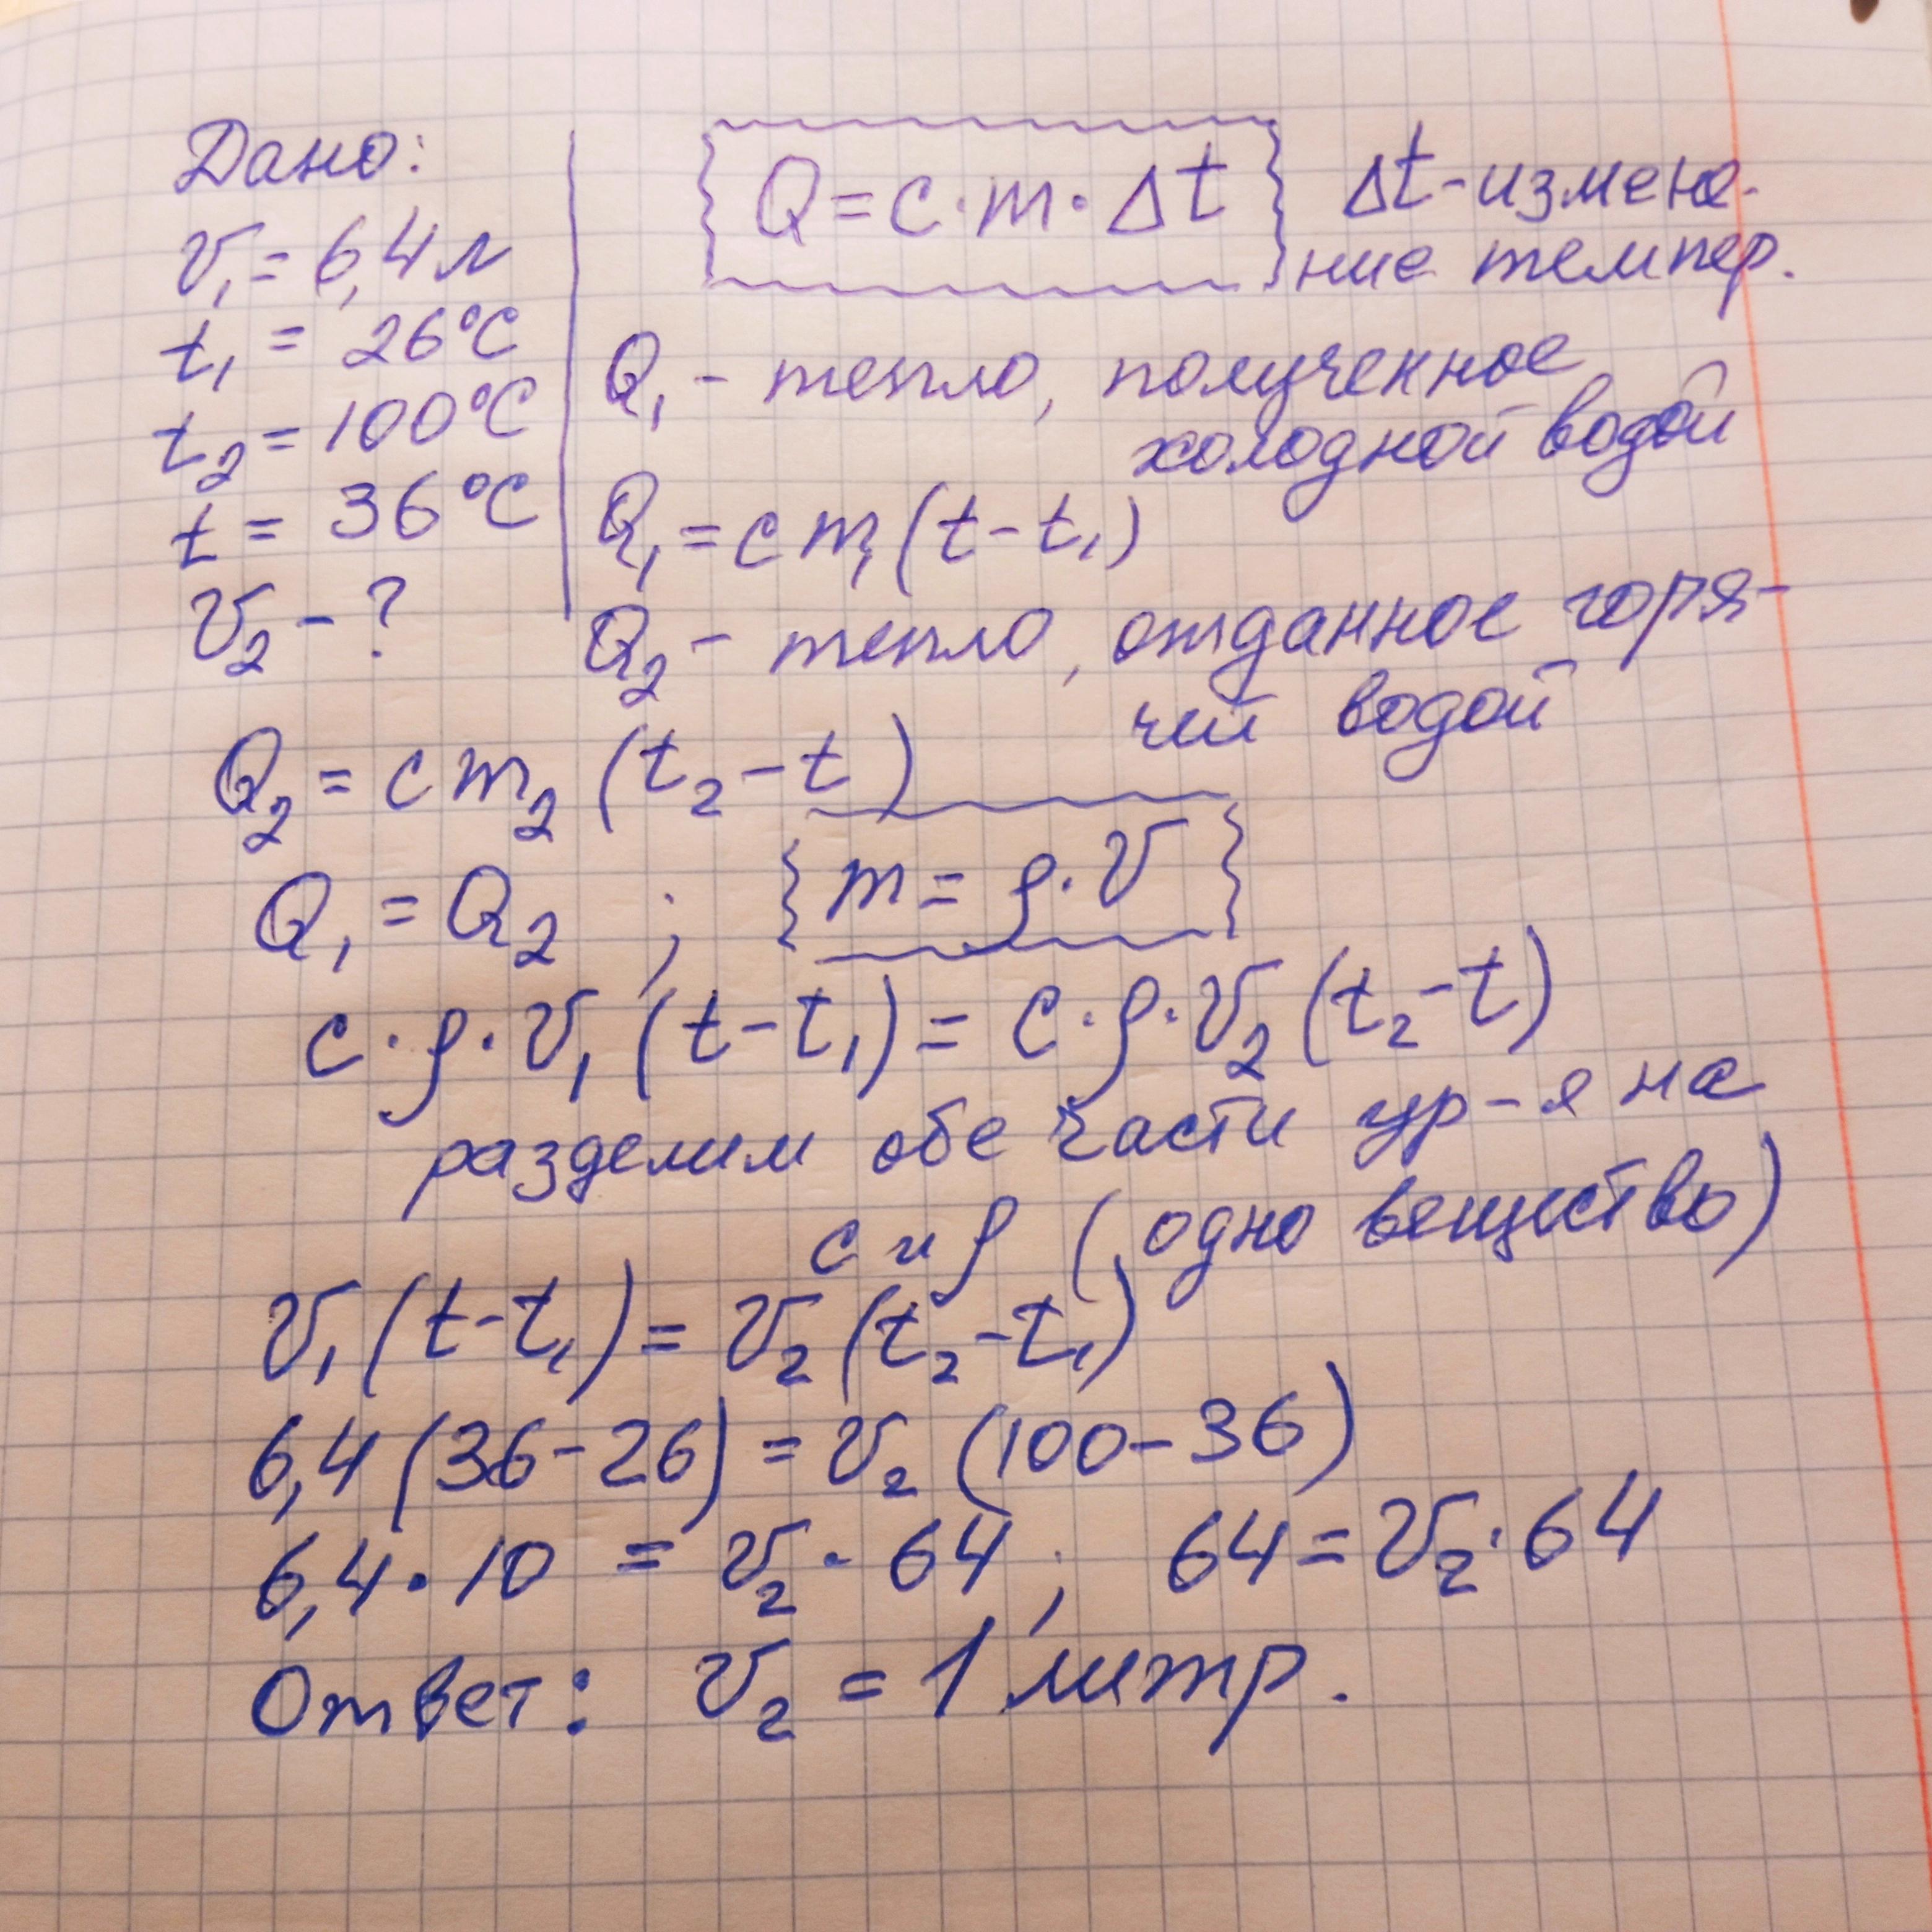 Дано:
V₁ = 6,4 л
t₁ = 26°C
t₂ = 100°C
t = 36°C
V₂ - ?
Q = c · m · Δt
Δt - измене-
ние темпер.
Q₁ - тепло, полученное
холодной водой
Q₁ = c m₁ (t - t₁)
Q₂ - тепло, отданное горя-
чей водой
Q₂ = c m₂ (t₂ - t)
Q₁ = Q₂ ; m = ρ · V
c · ρ · V₁ (t - t₁) = c · ρ · V₂ (t₂ - t)
разделим обе части ур-я на
c и ρ (одно вещество)
V₁ (t - t₁) = V₂ (t₂ - t₁)
6,4 (36 - 26) = V₂ (100 - 36)
6,4 · 10 = V₂ · 64 ; 64 = V₂ · 64
Ответ: V₂ = 1 литр.